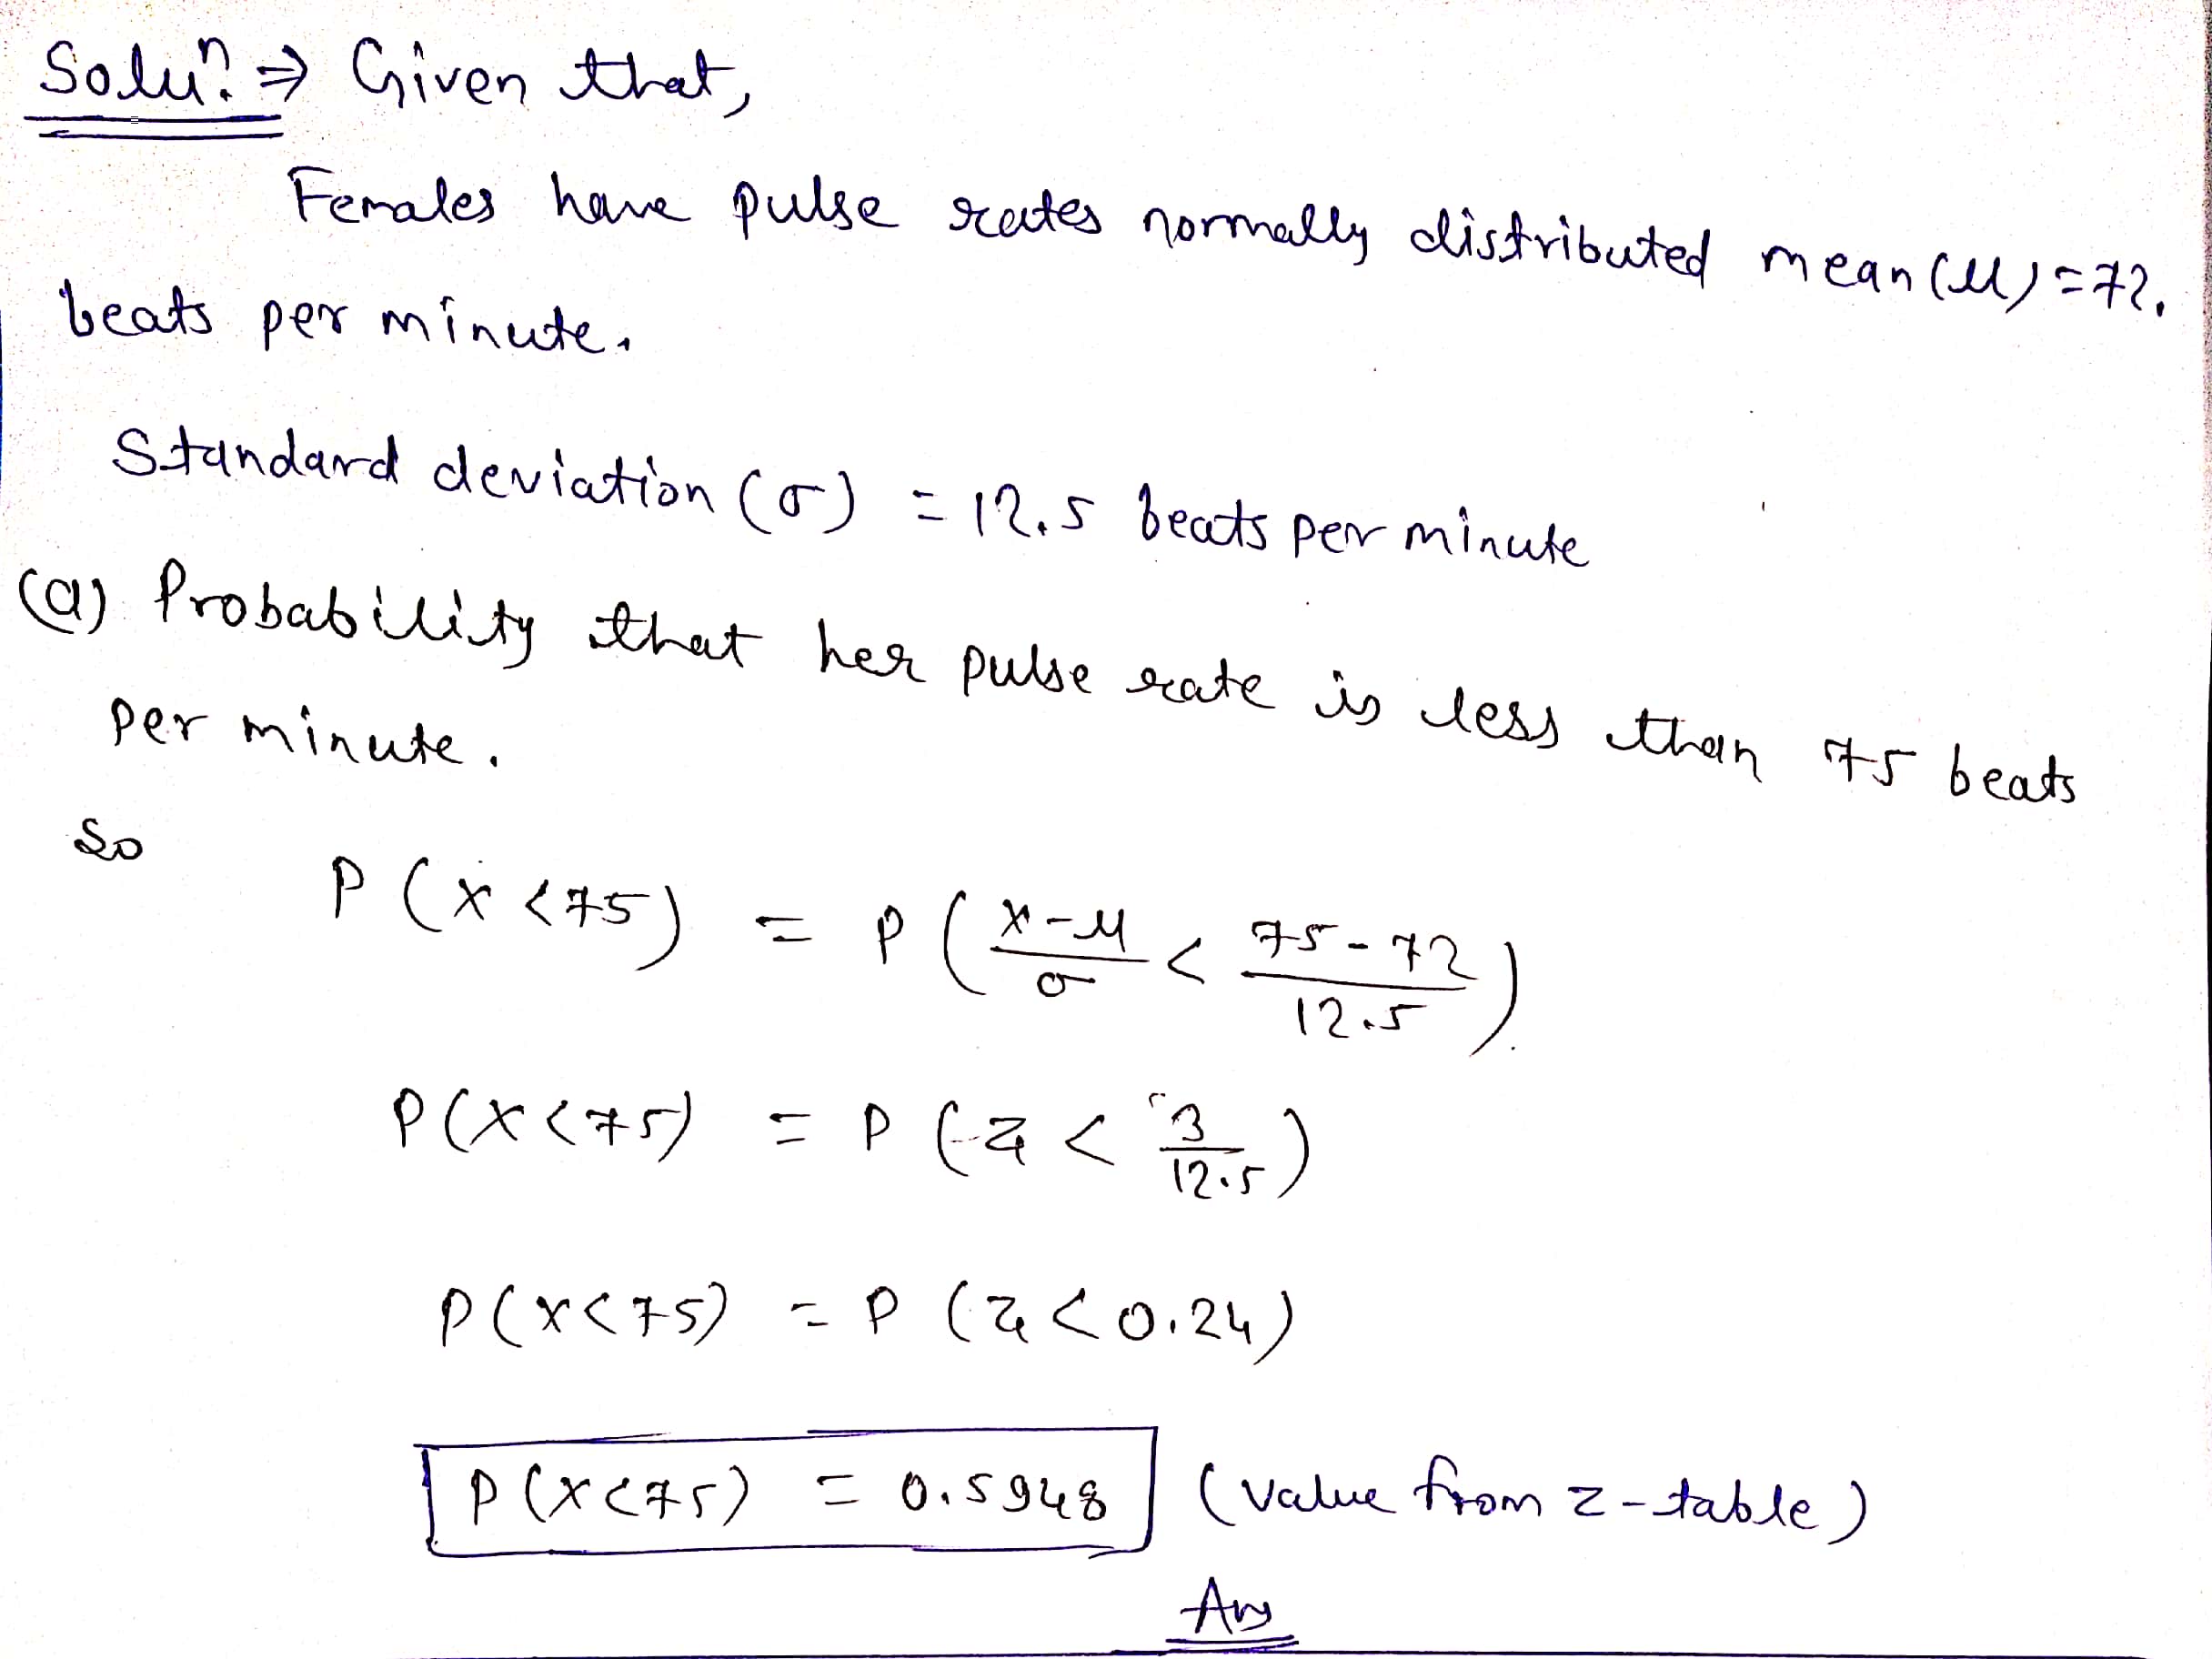 Soluⁿ. ⇒ Given that,
Females have pulse rates normally distributed mean (μ) = 72.
beats per minute.
Standard deviation (σ) = 12.5 beats per minute
(a) Probability that her pulse rate is less than 75 beats
per minute.
So
P (X < 75) = P ( (X - μ)/σ < (75 - 72)/12.5 )
P (X < 75) = P ( z < 3/12.5 )
P (X < 75) = P (z < 0.24)
P (X < 75) = 0.5948 (value from z-table)
Ans